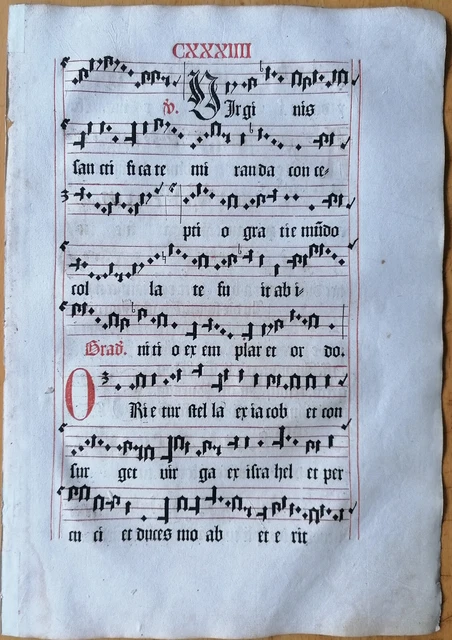 CXXXIIII
℣. VIrgi nis
san cti fi ca te mi ran da con ce-
pti o gra tie mũdo
col la te fu it ab i-
Grad̃. ni ti o ex em plar et or do.
ORi e tur stel la ex ia cob et con
sur get vir ga ex isra hel et per
cu ci et duces mo ab et e rit